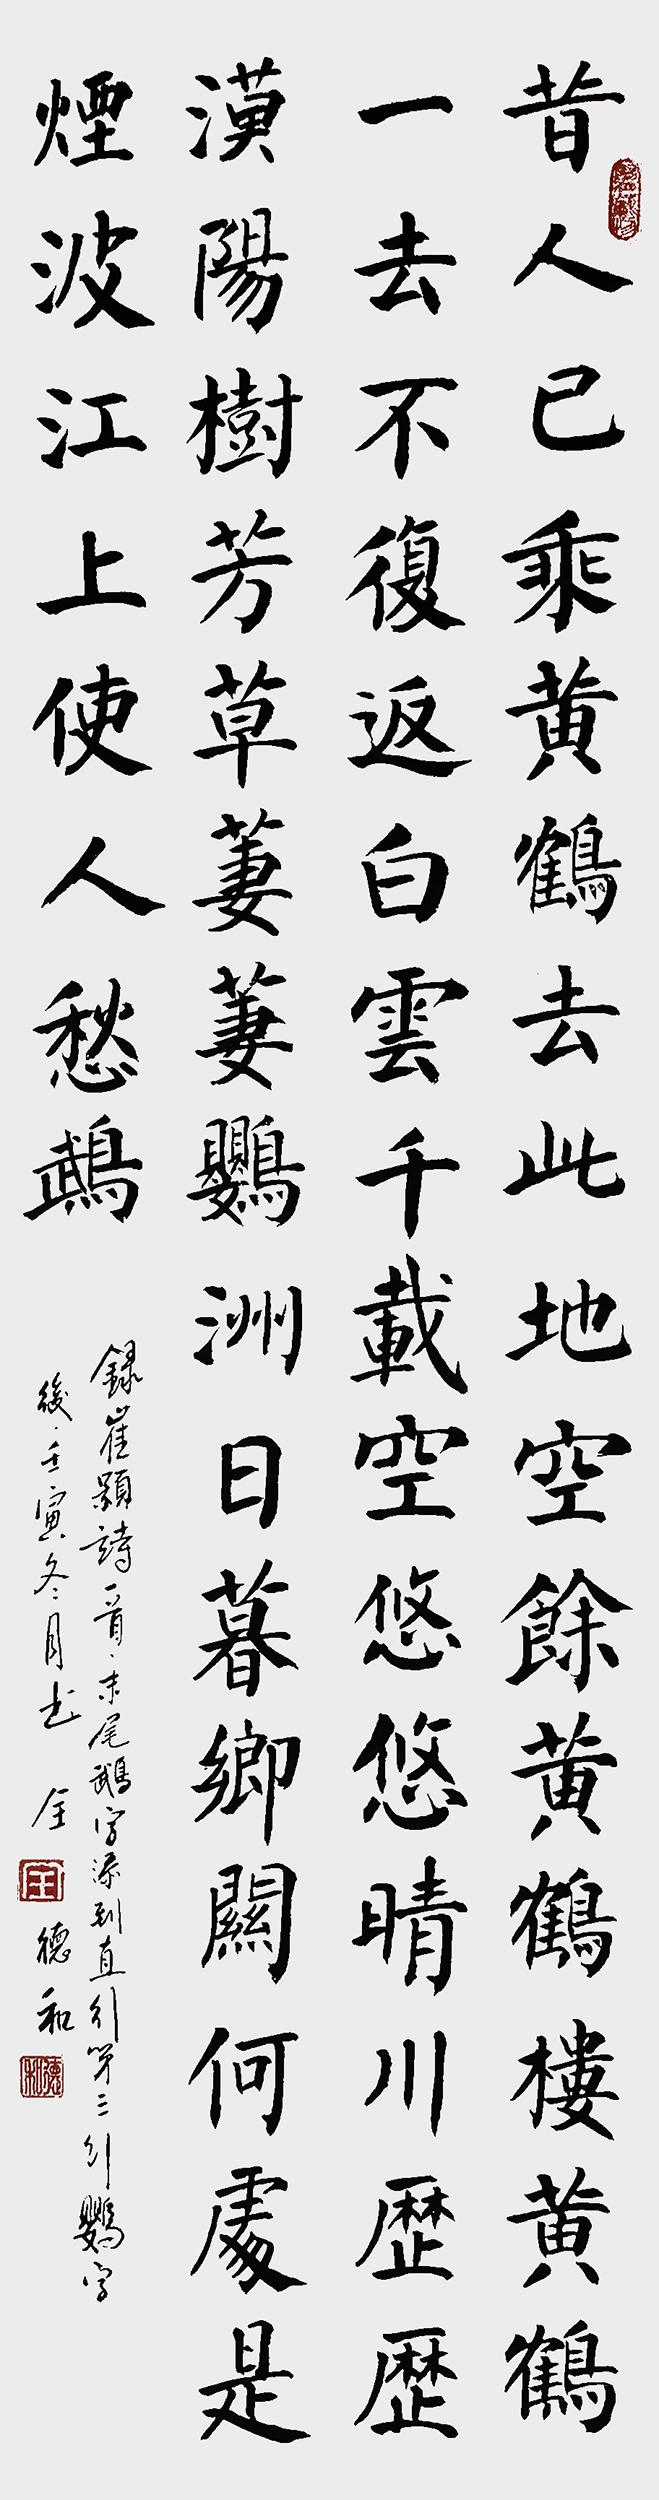 昔人已乘黄鶴去此地空餘黄鶴樓黄鶴
一去不復返白雲千載空悠悠晴川歴歴
漢陽樹芳草萋萋鸚洲日暮鄉關何處是
煙波江上使人愁鵡
錄崔顥詩一首、末尾鵡字添到直行第三行鸚字
後、壬寅冬月書 全德和